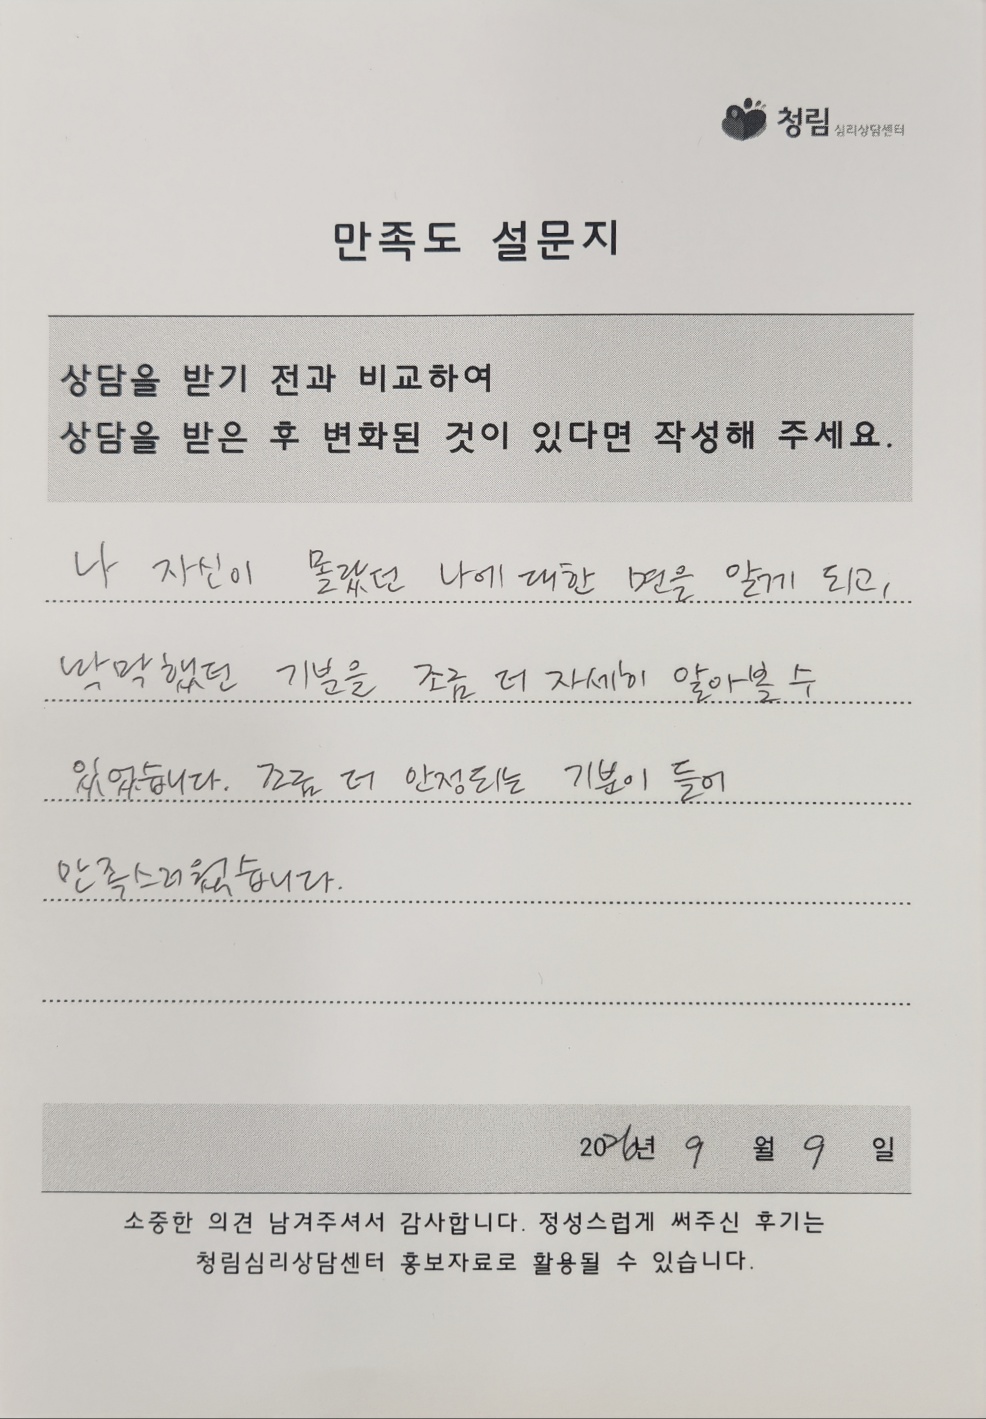 청림 심리상담센터
만족도 설문지
상담을 받기 전과 비교하여
상담을 받은 후 변화된 것이 있다면 작성해 주세요.
나 자신이 몰랐던 나에 대한 면을 알게 되고,
막막했던 기분을 조금 더 자세히 알아볼 수
있었습니다. 조금 더 안정되는 기분이 들어
만족스러웠습니다.
2026년 9 월 9 일
소중한 의견 남겨주셔서 감사합니다. 정성스럽게 써주신 후기는
청림심리상담센터 홍보자료로 활용될 수 있습니다.